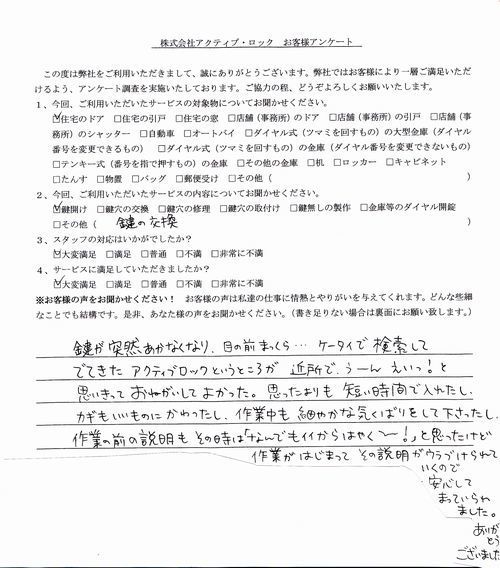 株式会社アクティブ・ロック　お客様アンケート
この度は弊社をご利用いただきまして、誠にありがとうございます。弊社ではお客様により一層ご満足いただ
けるよう、アンケート調査を実施いたしております。ご協力の程、どうぞよろしくお願いいたします。
1、今回、ご利用いただいたサービスの対象物についてお聞かせください。
☑住宅のドア　□住宅の引戸　□住宅の窓　□店舗（事務所）のドア　□店舗（事務所）の引戸　□店舗（事
務所）のシャッター　□自動車　□オートバイ　□ダイヤル式（ツマミを回すもの）の大型金庫（ダイヤル
番号を変更できるもの）　□ダイヤル式（ツマミを回すもの）の金庫（ダイヤル番号を変更できないもの）
□テンキー式（番号を指で押すもの）の金庫　□その他の金庫　□机　□ロッカー　□キャビネット
□たんす　□物置　□バッグ　□郵便受け　□その他（　　　）
2、今回、ご利用いただいたサービスの内容についてお聞かせください。
☑鍵開け　□鍵穴の交換　□鍵穴の修理　□鍵穴の取付け　□鍵無しの製作　□金庫等のダイヤル開錠
□その他（　鍵の交換　）
3、スタッフの対応はいかがでしたか？
☑大変満足　□満足　□普通　□不満　□非常に不満
4、サービスに満足していただきましたか？
☑大変満足　□満足　□普通　□不満　□非常に不満
※お客様の声をお聞かせください！　お客様の声は私達の仕事に情熱とやりがいを与えてくれます。どんな些細
なことでも結構です。是非、あなた様の声をお聞かせください。（書き足りない場合は裏面にお願い致します。）
鍵が突然あかなくなり、目の前まっくら…ケータイで検索して
でてきたアクティブロックというところが近所で、うーんえいっ！と
思いきっておねがいしてよかった。思ったよりも短い時間で入れたし、
カギもいいものにかわったし、作業中も細やかな気くばりをして下さったし、
作業の前の説明もその時は「なんでもイイからはやく〜！」と思ったけど
作業がはじまってその説明がウラづけられて
いくので
安心して
まっていられ
ました。
ありが
とう
ございました